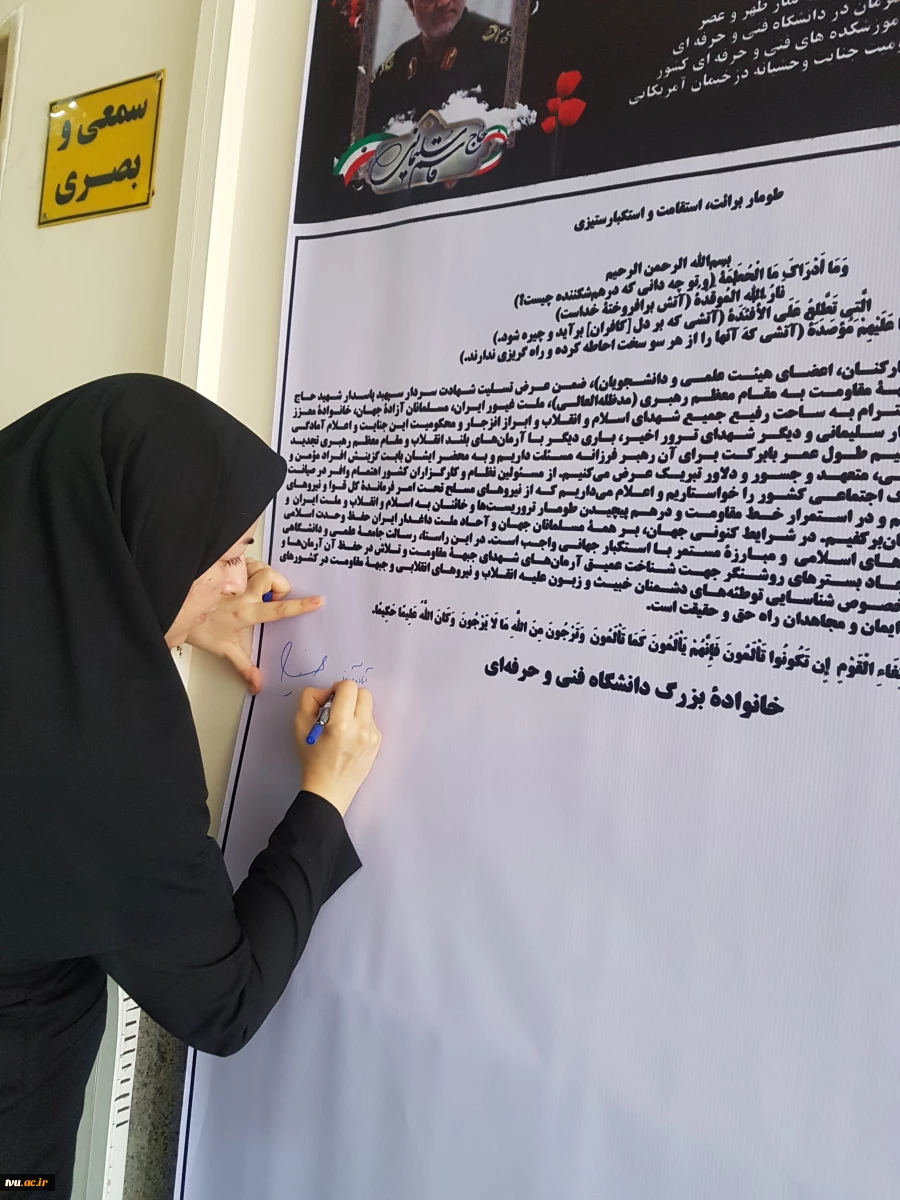 سمعی و
بصری
در دانشگاه فنی و حرفه ای
فنی و حرفه ای کشور
جنایت وحشیانه دژخیمان آمریکایی
حاج قاسم سلیمانی
طومار برائت، استقامت و استکبارستیزی
بسم‌الله الرحمن الرحیم
وَمَا اَدْرَاکَ مَا الْحُطَمَةُ (و تو چه دانی که درهم‌شکننده چیست؟)
نَارُ اللّهِ المُوقَدَةُ (آتش برافروختهٔ خداست)
الَّتِی تَطَّلِعُ عَلَی الأَفْئِدَةِ (آتشی که بر دل [کافران] برآید و چیره شود.)
عَلَیْهِمْ مُؤْصَدَةٌ (آتشی که آنها را از هر سو سخت احاطه کرده و راه گریزی ندارند.)
کارکنان، اعضای هیئت علمی و دانشجویان)، ضمن عرض تسلیت شهادت سردار سپهبد پاسدار شهید حاج
مقاومت به مقام معظم رهبری (مدظله‌العالی)، ملت غیور ایران، مسلمانان آزادهٔ جهان، خانوادهٔ معزز
به ساحت رفیع جمیع شهدای اسلام و انقلاب و ابراز انزجار و محکومیت این جنایت و اعلام آمادگی
سلیمانی و دیگر شهدای ترور اخیر، باری دیگر با آرمان‌های بلند انقلاب و مقام معظم رهبری تجدید
طول عمر بابرکت برای آن رهبر فرزانه مسئلت داریم و به محضر ایشان بابت گزینش افراد مؤمن و
متعهد و جسور و دلاور تبریک عرض می‌کنیم. از مسئولین نظام و کارگزاران کشور اهتمام وافر در صیانت
اجتماعی کشور را خواستاریم و اعلام می‌داریم که از نیروهای مسلح تحت امر فرماندهٔ کل قوا و نیروهای
و در استمرار خط مقاومت و درهم پیچیدن طومار تروریست‌ها و خائنان به اسلام و انقلاب و ملت ایران و
در شرایط کنونی جهان، بر همهٔ مسلمانان جهان و آحاد ملت داغدار ایران حفظ وحدت اسلامی
اسلامی و مبارزهٔ مستمر با استکبار جهانی واجب است. در این راستا، رسالت جامعهٔ علمی و دانشگاهی
بسترهای روشنگر جهت شناخت عمیق آرمان‌های شهدای جبههٔ مقاومت و تلاش در حفظ آن آرمان‌ها و
شناسایی توطئه‌های دشمنان خبیث و زبون علیه انقلاب و نیروهای انقلابی و جبههٔ مقاومت در کشورهای
و مجاهدان راه حق و حقیقت است.
الْقَوْمِ إِن تَکُونُوا تَأْلَمُونَ فَإِنَّهُمْ یَأْلَمُونَ کَمَا تَأْلَمُونَ وَتَرْجُونَ مِنَ اللَّهِ مَا لَا یَرْجُونَ وَکَانَ اللَّهُ عَلِیمًا حَکِیمًا.
خانوادهٔ بزرگ دانشگاه فنی و حرفه‌ای
tvu.ac.ir